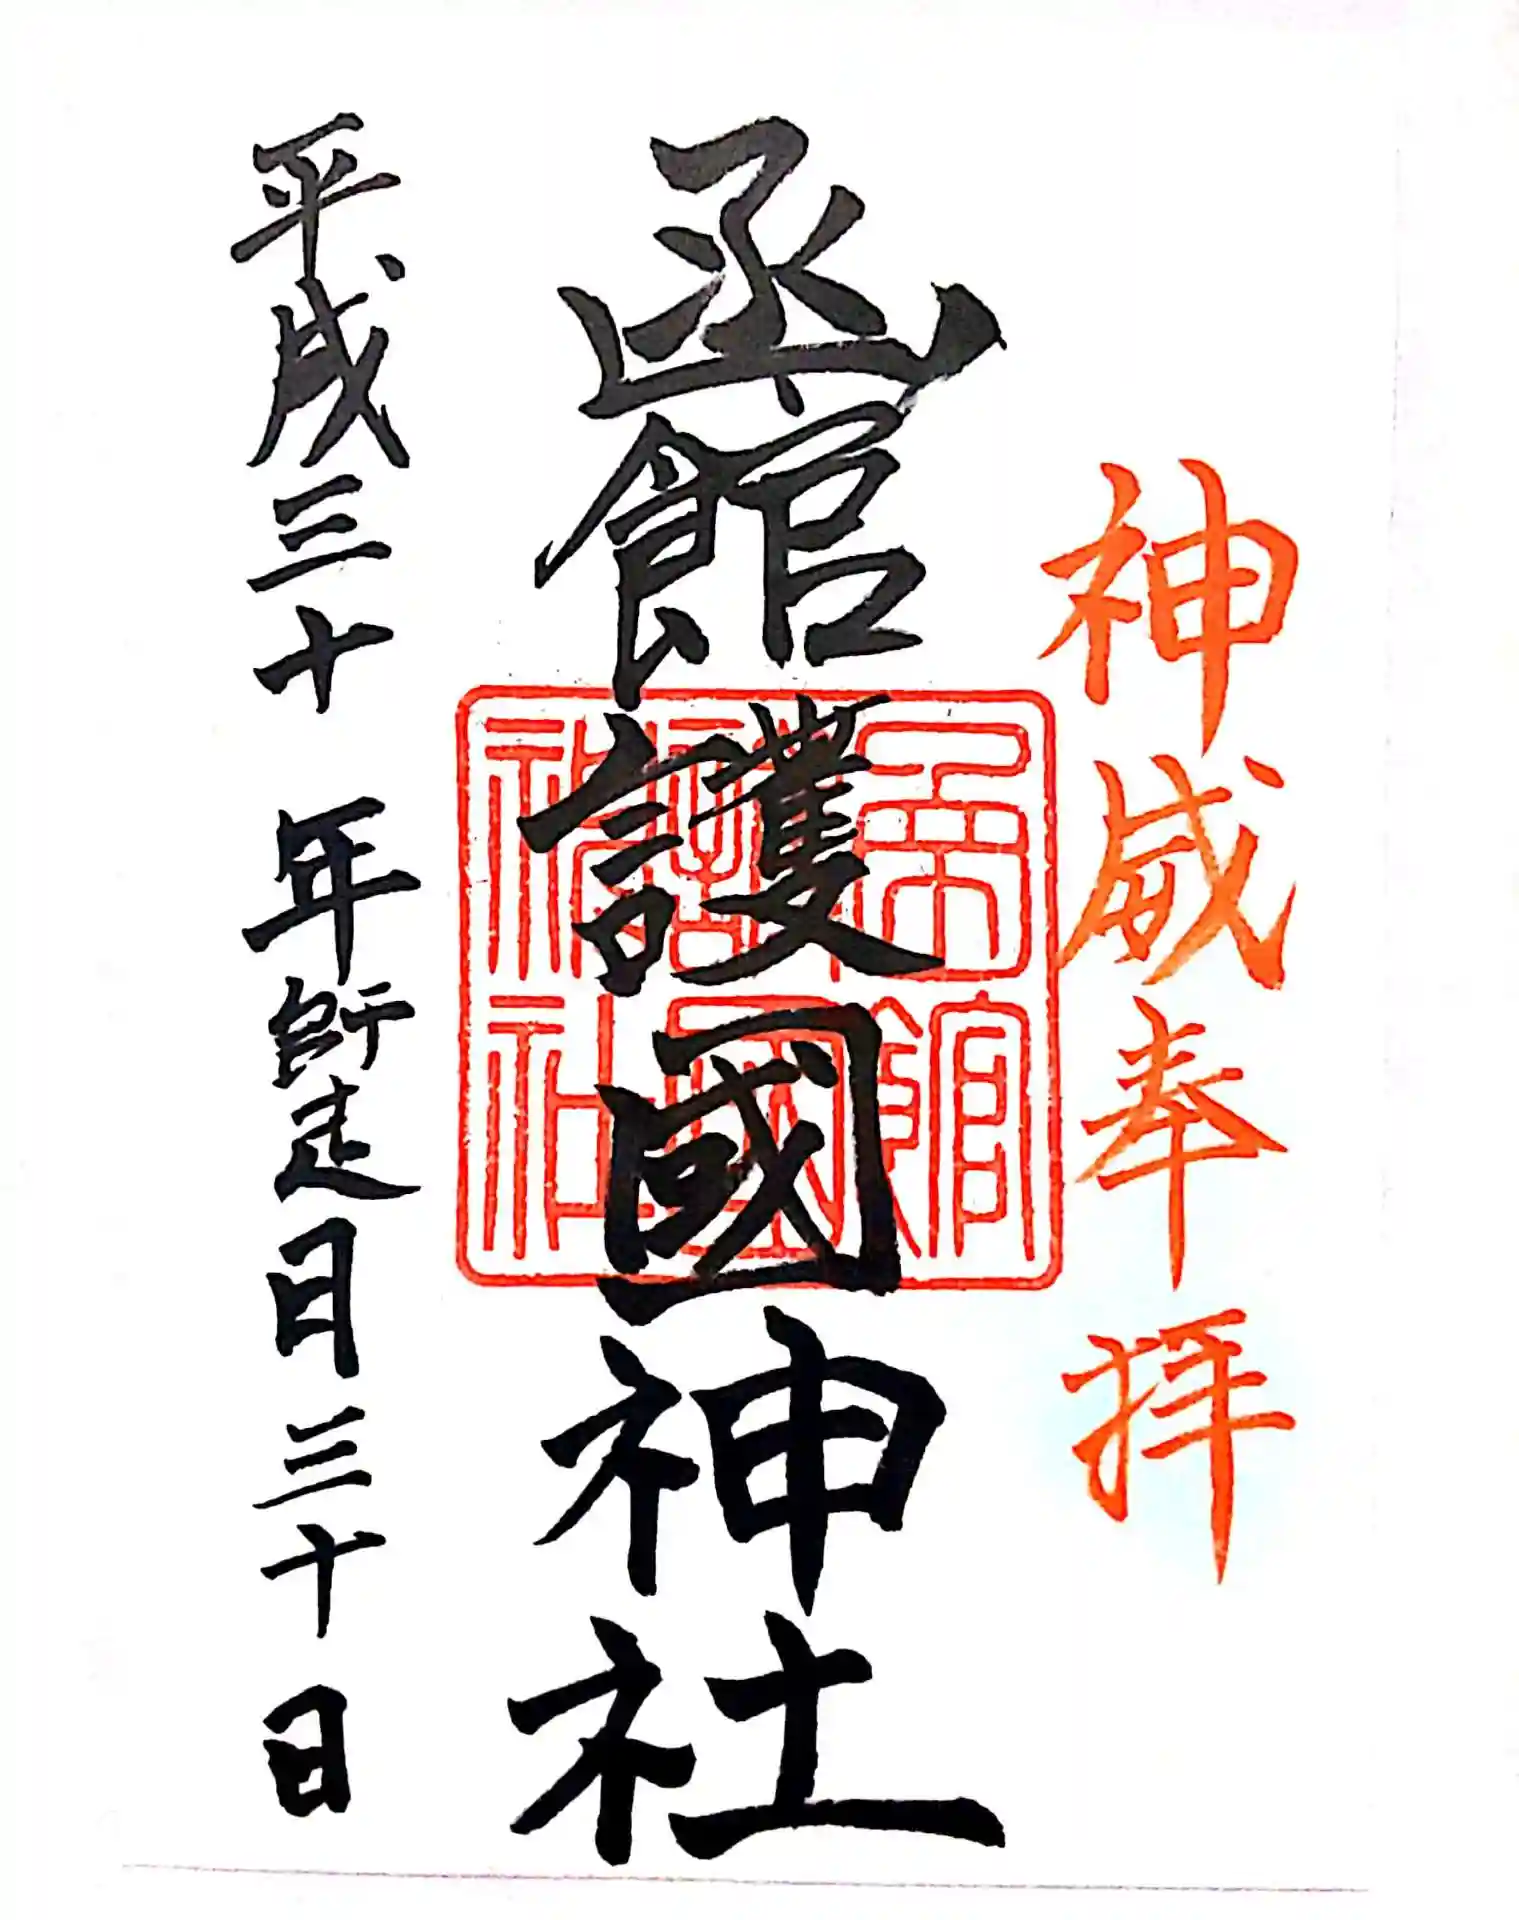 神威奉拝
函館護國神社
函館護國神社
平成三十年師走日三十日